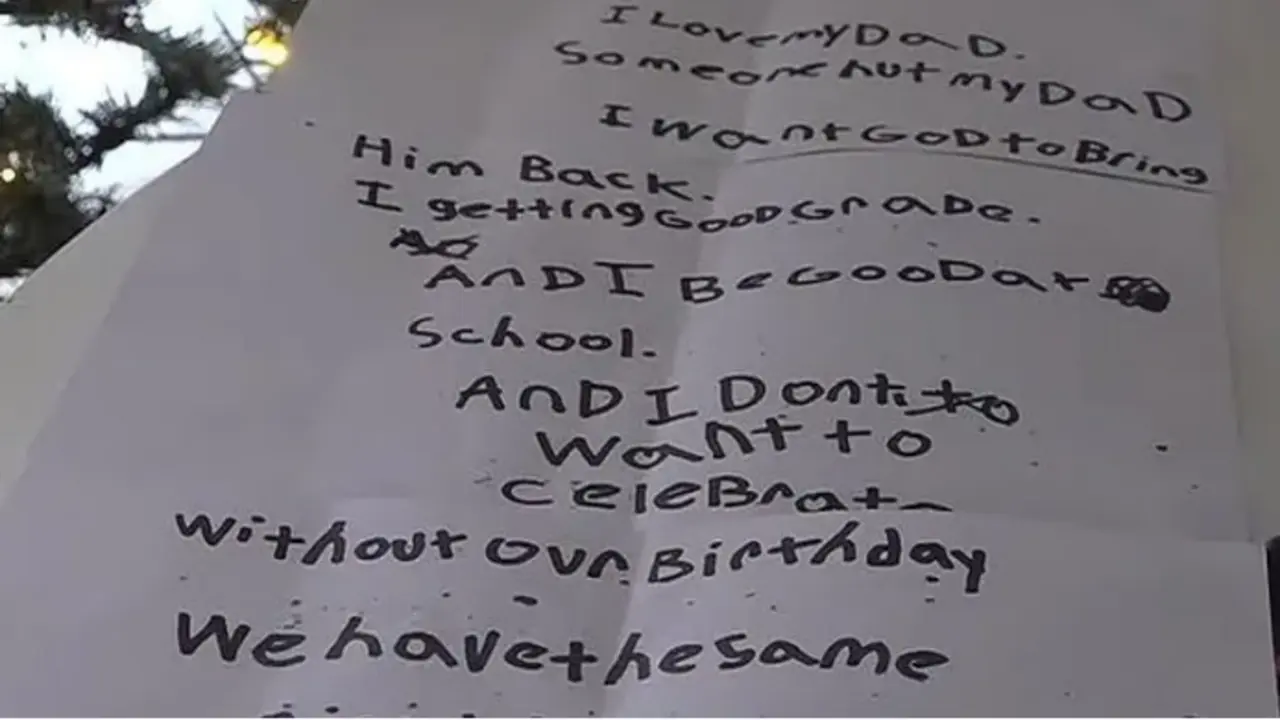 I Love my DaD.
Someone hut my DaD
I want GoD to Bring
Him Back.
I getting GooD GraDe.
AnD I Be GooD at
School.
AnD I Dont to
want to
CeleBrat
without our Birthday
We have the same